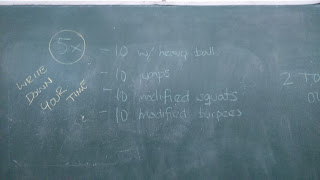 5x
= 10 w/ heavy ball
= 10 jumps
= 10 modified squats
= 10 modified burpees
WRITE
DOWN
YOUR
TIME
2